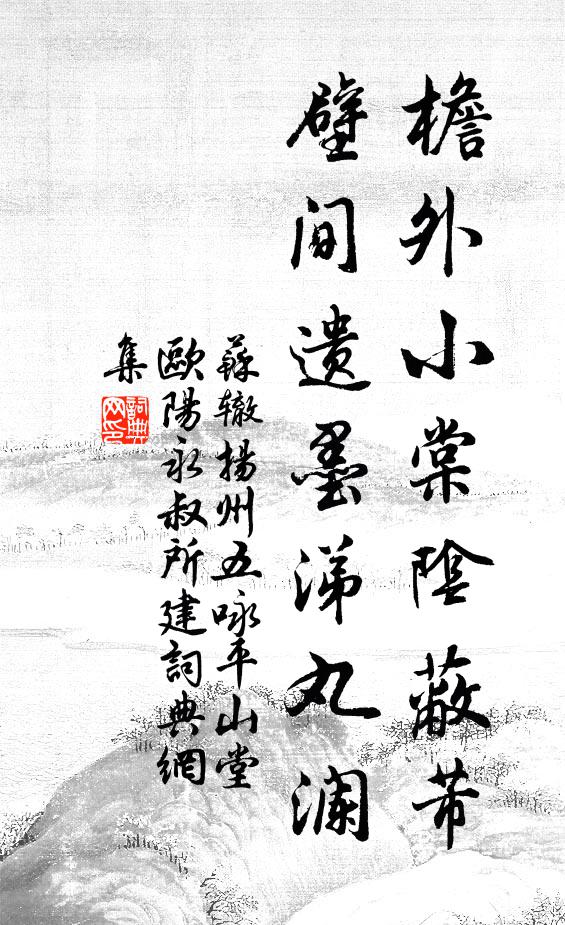 檐外小棠陰蔽芾
壁间遗墨涕丸澜
蘇辙揚州五咏平山堂
歐陽永叔所建詞典網
集
詞典网印